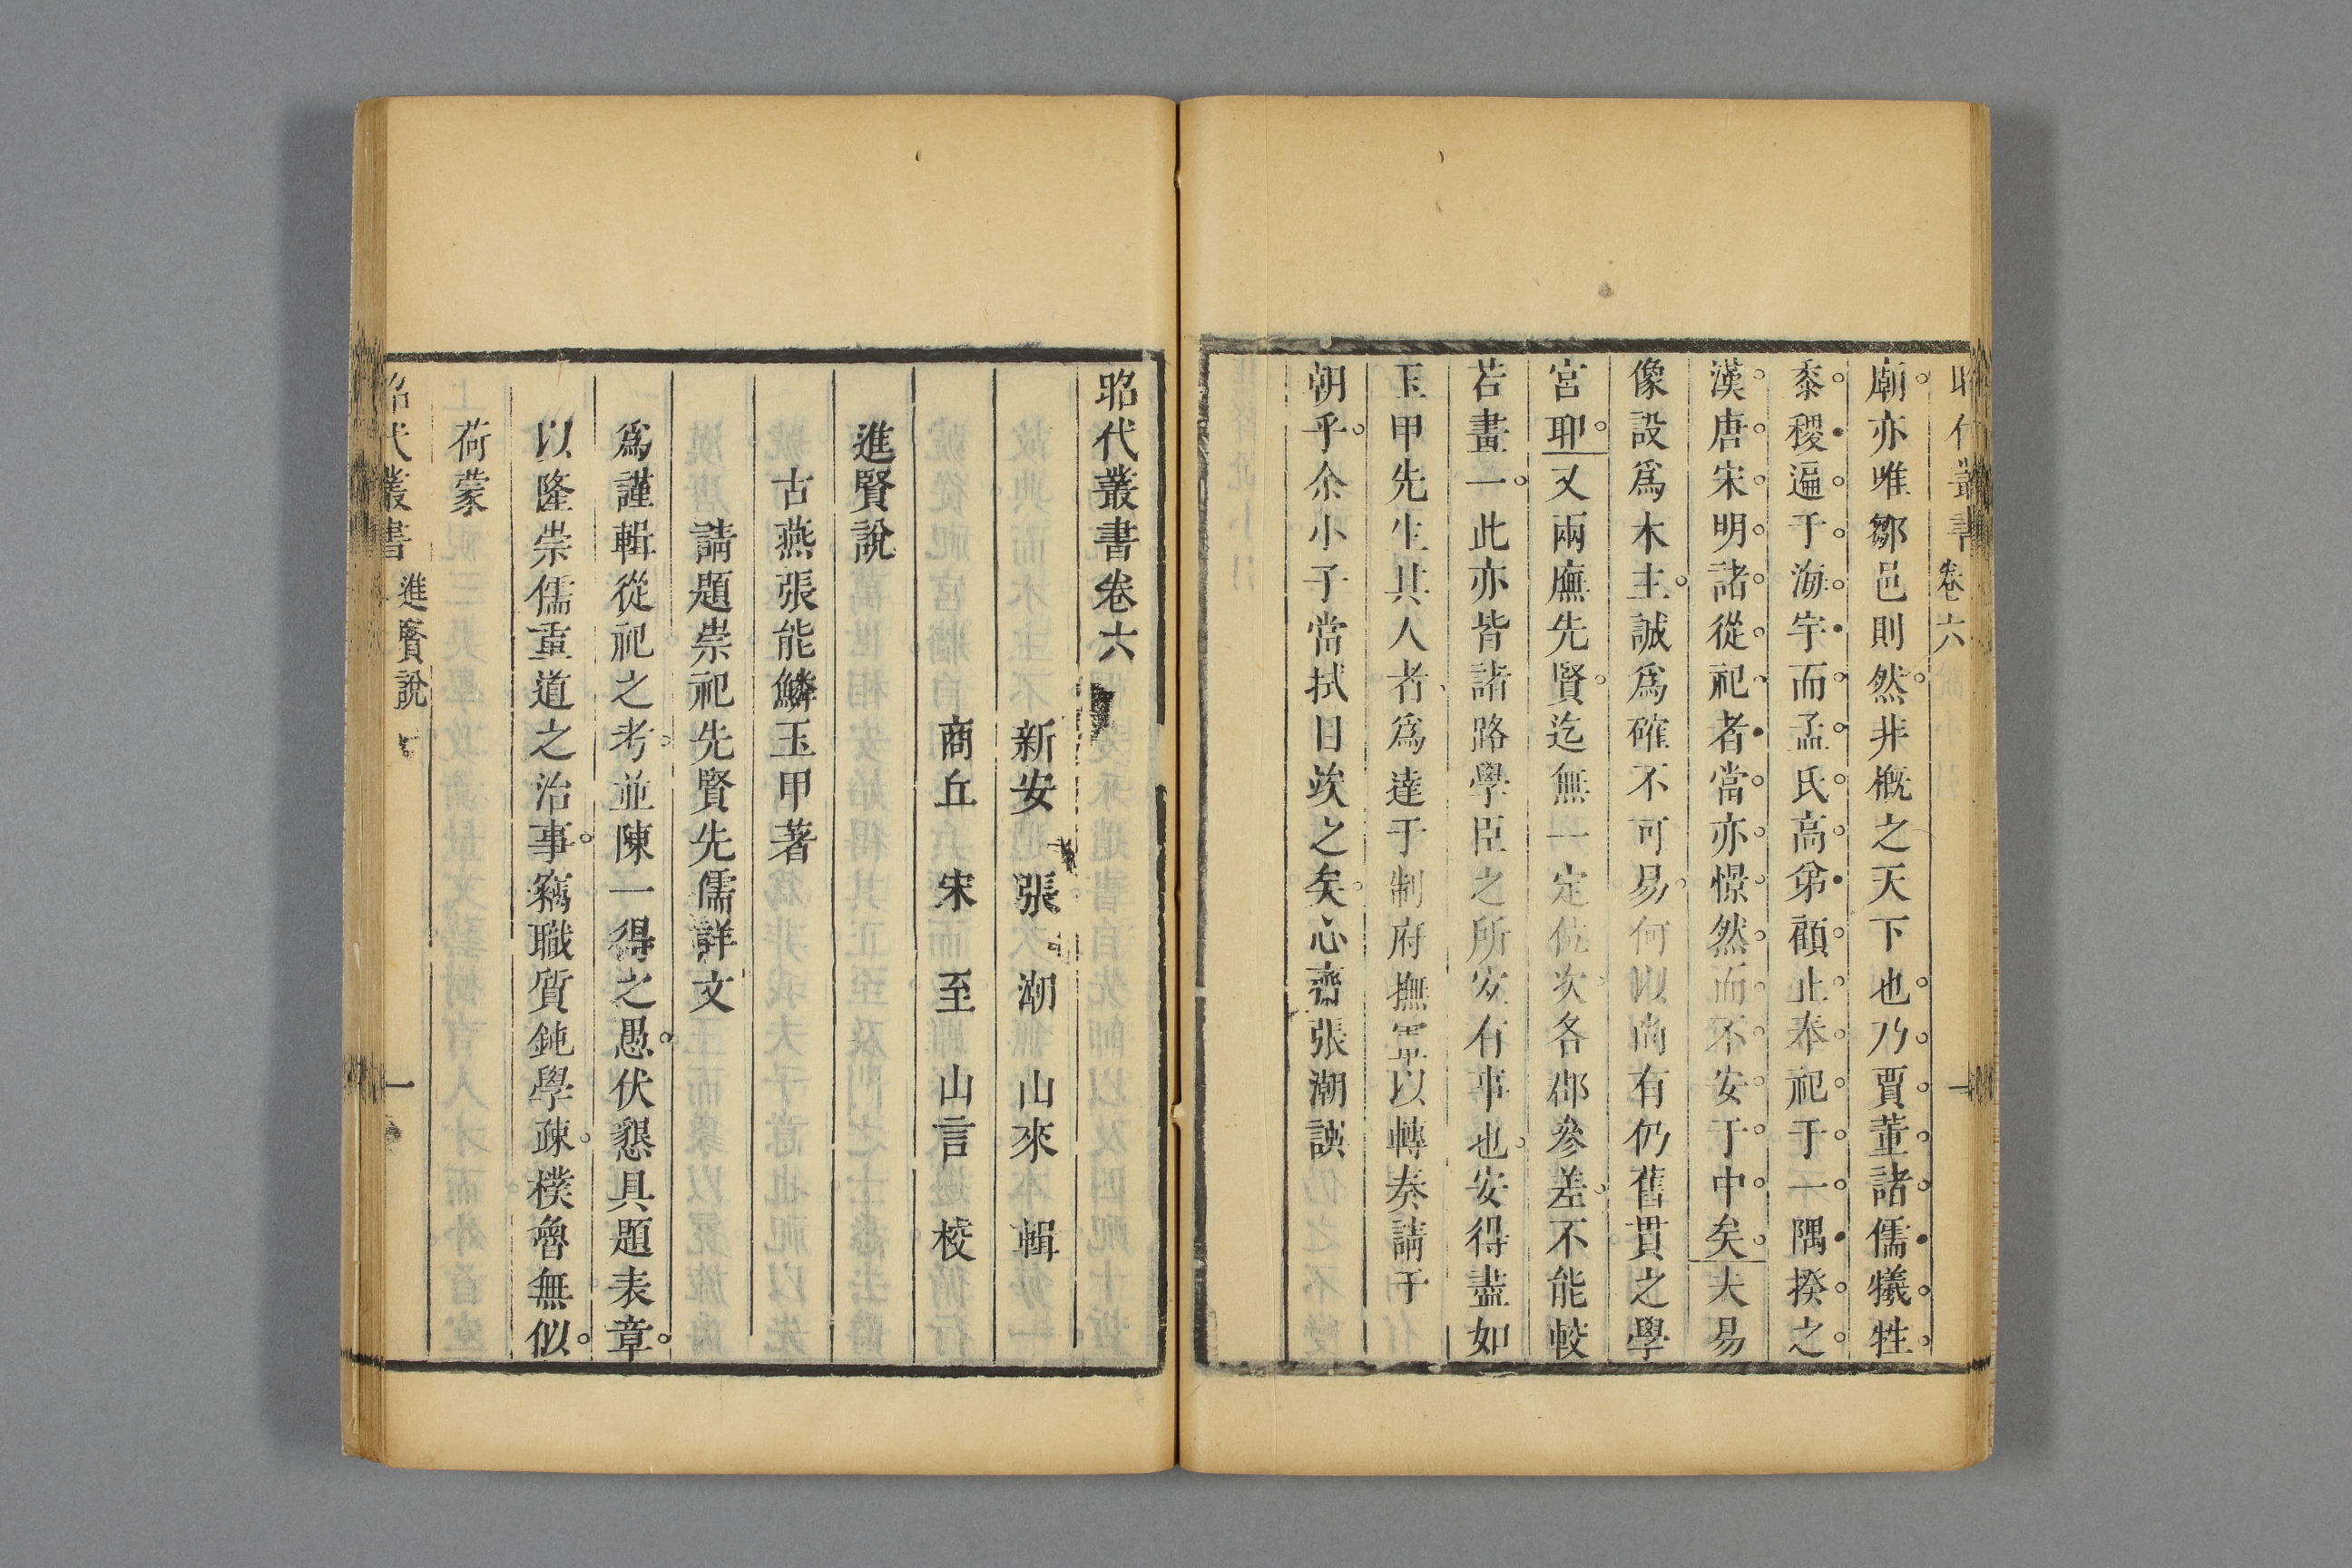 昭代叢書 卷六 一
廟亦唯鄒邑則然非概之天下也乃賈董諸儒犧牲
黍稷遍于海宇而孟氏高弟顧止奉祀于一隅揆之
漢唐宋明諸從祀者當亦憬然而不安于中矣夫易
像設爲木主誠爲確不可易何以尚有仍舊貫之學
宮耶又兩廡先賢迄無一定位次各郡參差不能較
若畫一此亦皆諸路學臣之所宜有事也安得盡如
玉甲先生其人者爲達于制府撫軍以轉奏請于
朝乎余小子當拭目竢之矣心齋張潮譔
昭代叢書卷六
新安 張 潮 山來 輯
商丘 宋 至 山言 校
進賢說
古燕張能鱗玉甲著
請題崇祀先賢先儒詳文
爲謹輯從祀之考並陳一得之愚伏懇具題表章
以隆崇儒重道之治事竊職質鈍學疎樸魯無似
荷蒙
昭代叢書 進賢說 一